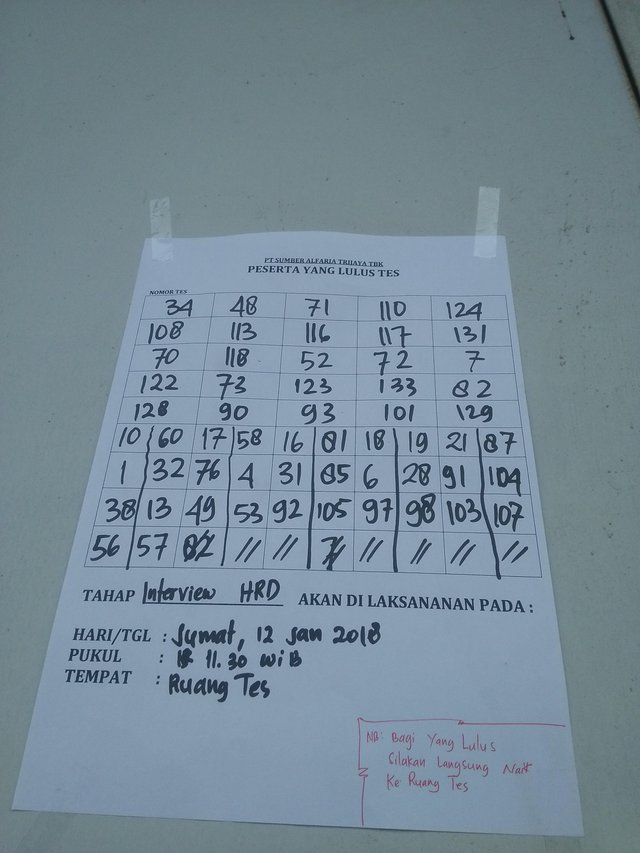 PT SUMBER ALFARIA TRIJAYA TBK
PESERTA YANG LULUS TES
NOMOR TES
34 48 71 110 124
108 113 116 117 131
70 118 52 72 7
122 73 123 133 82
128 90 93 101 129
10 60 17 58 16 81 18 19 21 87
1 32 76 4 31 85 6 28 91 104
38 13 49 53 92 105 97 98 103 107
56 57 82 // // // // // // //
TAHAP Interview HRD AKAN DI LAKSANANAN PADA :
HARI/TGL : Jumat, 12 Jan 2018
PUKUL : 11.30 WIB
TEMPAT : Ruang Tes
NB: Bagi Yang Lulus
Silakan Langsung Naik
Ke Ruang Tes